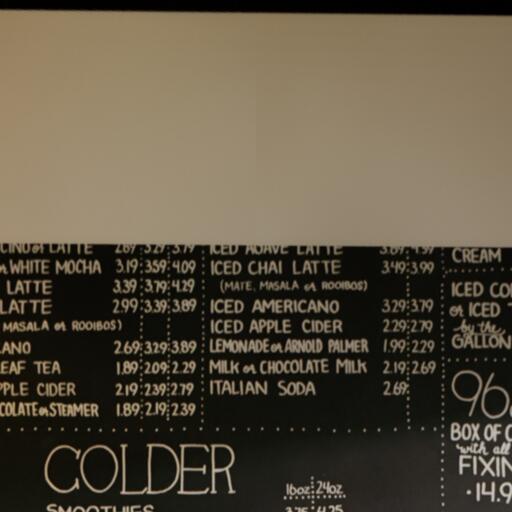 LATTE 2.69 3.29 3.79
WHITE MOCHA 3.19 3.59 4.09
LATTE 3.39 3.79 4.29
LATTE 2.99 3.39 3.89
MASALA or ROOIBOS)
ANO 2.69 3.29 3.89
EAF TEA 1.89 2.09 2.29
PLE CIDER 2.19 2.39 2.79
COLATE or STEAMER 1.89 2.19 2.39
ICED AGAVE LATTE 3.89 4.39
ICED CHAI LATTE 3.49 3.99
(MATE, MASALA or ROOIBOS)
ICED AMERICANO 3.29 3.79
ICED APPLE CIDER 2.29 2.79
LEMONADE or ARNOLD PALMER 1.99 2.29
MILK or CHOCOLATE MILK 2.19 2.69
ITALIAN SODA 2.69
CREAM
ICED CO
or ICED
by the
GALLON
96
BOX OF
with all
FIXIN
14.9
COLDER
16oz 24oz
SMOOTHIES 3.75 4.25